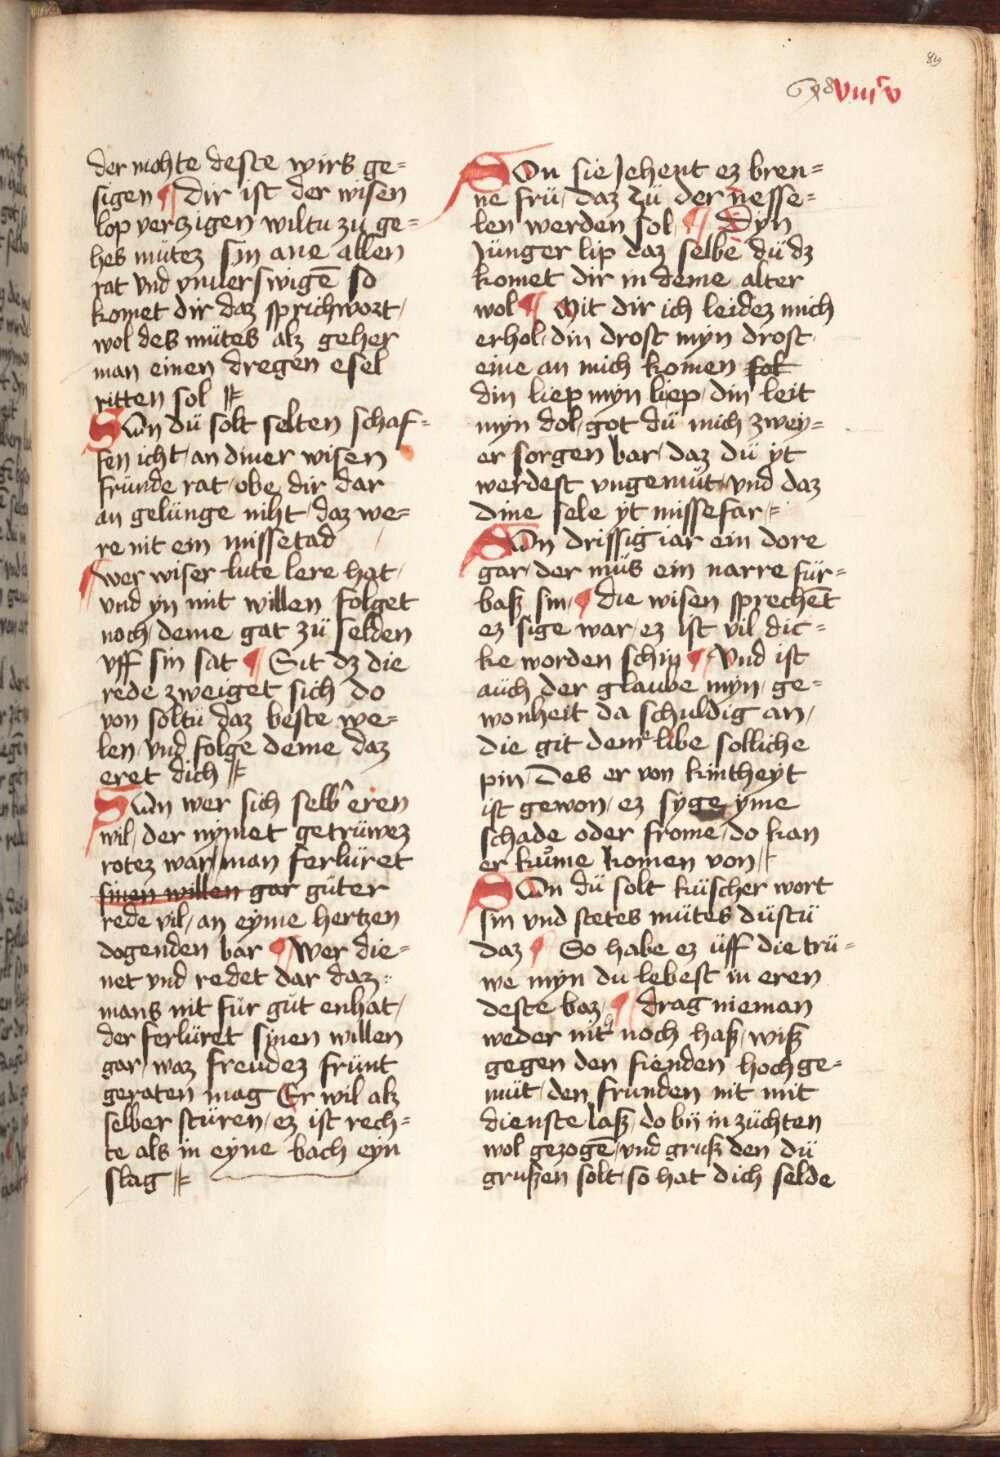 der mohte deste wirs ge=
sigen ¶ Dir ist der wisen
lop verzigen wiltu zu ge=
hes mütez sin ane allen
rat vnd vnuerswigē so
komet dir daz sprichwort
wol des mütes alz geher
man einen dregen esel
ritten sol
Sün dü solt selten schaf=
fen icht, an diner wisen
fründe rat, obe dir dar
an gelünge niht, daz we=
re nit ein missetad
wer wiser lute lere hat,
vnd yn mit willen folget
noch, deme gat zü selden
vff sin sat ¶ Sit dz die
rede zweiget sich do
von soltü daz beste we=
len, vnd folge deme daz
eret dich
Sün wer sich selb' eren
wil, der nymet getrüwez
rotez war, man ferlüret
sinen willen gar güter
rede vil, an eyme hertzen
dogenden bar ¶ Wer die=
net vnd redet dar daz
mans nit für güt enhat,
der ferlüret synen willen
gar, waz freudez frünt
geraten mag Er wil alz
selber stüren, ez ist rech=
te als in eyne bach eyn
slag
819
698 viiijc v
Sün sie Jehent ez bren=
ne frü, daz zü der nesse=
len werden sol ¶ Dyn
Jünger lip daz selbe dü dz
komet dir in deme alter
wol ¶ Mit dir ich leidez mich
erhol, din drost myn drost
eine an mich komen sol
din liep myn liep, din leit
myn dol, got dü mich zwey=
er sorgen bar, daz dü yt
werdest vngemüt, vnd daz
dine sele yt missefar
Sün drissig iar ein dore
gar, der müs ein narre für=
basz sin, ¶ die wisen sprechēt
ez sige war, ez ist vil dic=
ke worden schin ¶ Vnd ist
aüch der glaube myn, ge=
wonheit da schuldig an,
die git deme libe solliche
pin, Des er von kintheyt
ist gewon, ez syge yme
schade oder frome, do kan
er kůme komen von
Sün dü solt küscher wort
sin vnd stetes mütes düstü
daz ¶ So habe ez üff die trü=
we myn du lebest in eren
deste baz, ¶ drag nieman
weder nit noch hasz, wisz
gegen den fienden hochge=
müt, den frunden nit mit
dienste lasz, do bij in züchten
wol gezogē, vnd grusz den dü
gruszen solt, so hat dich selde